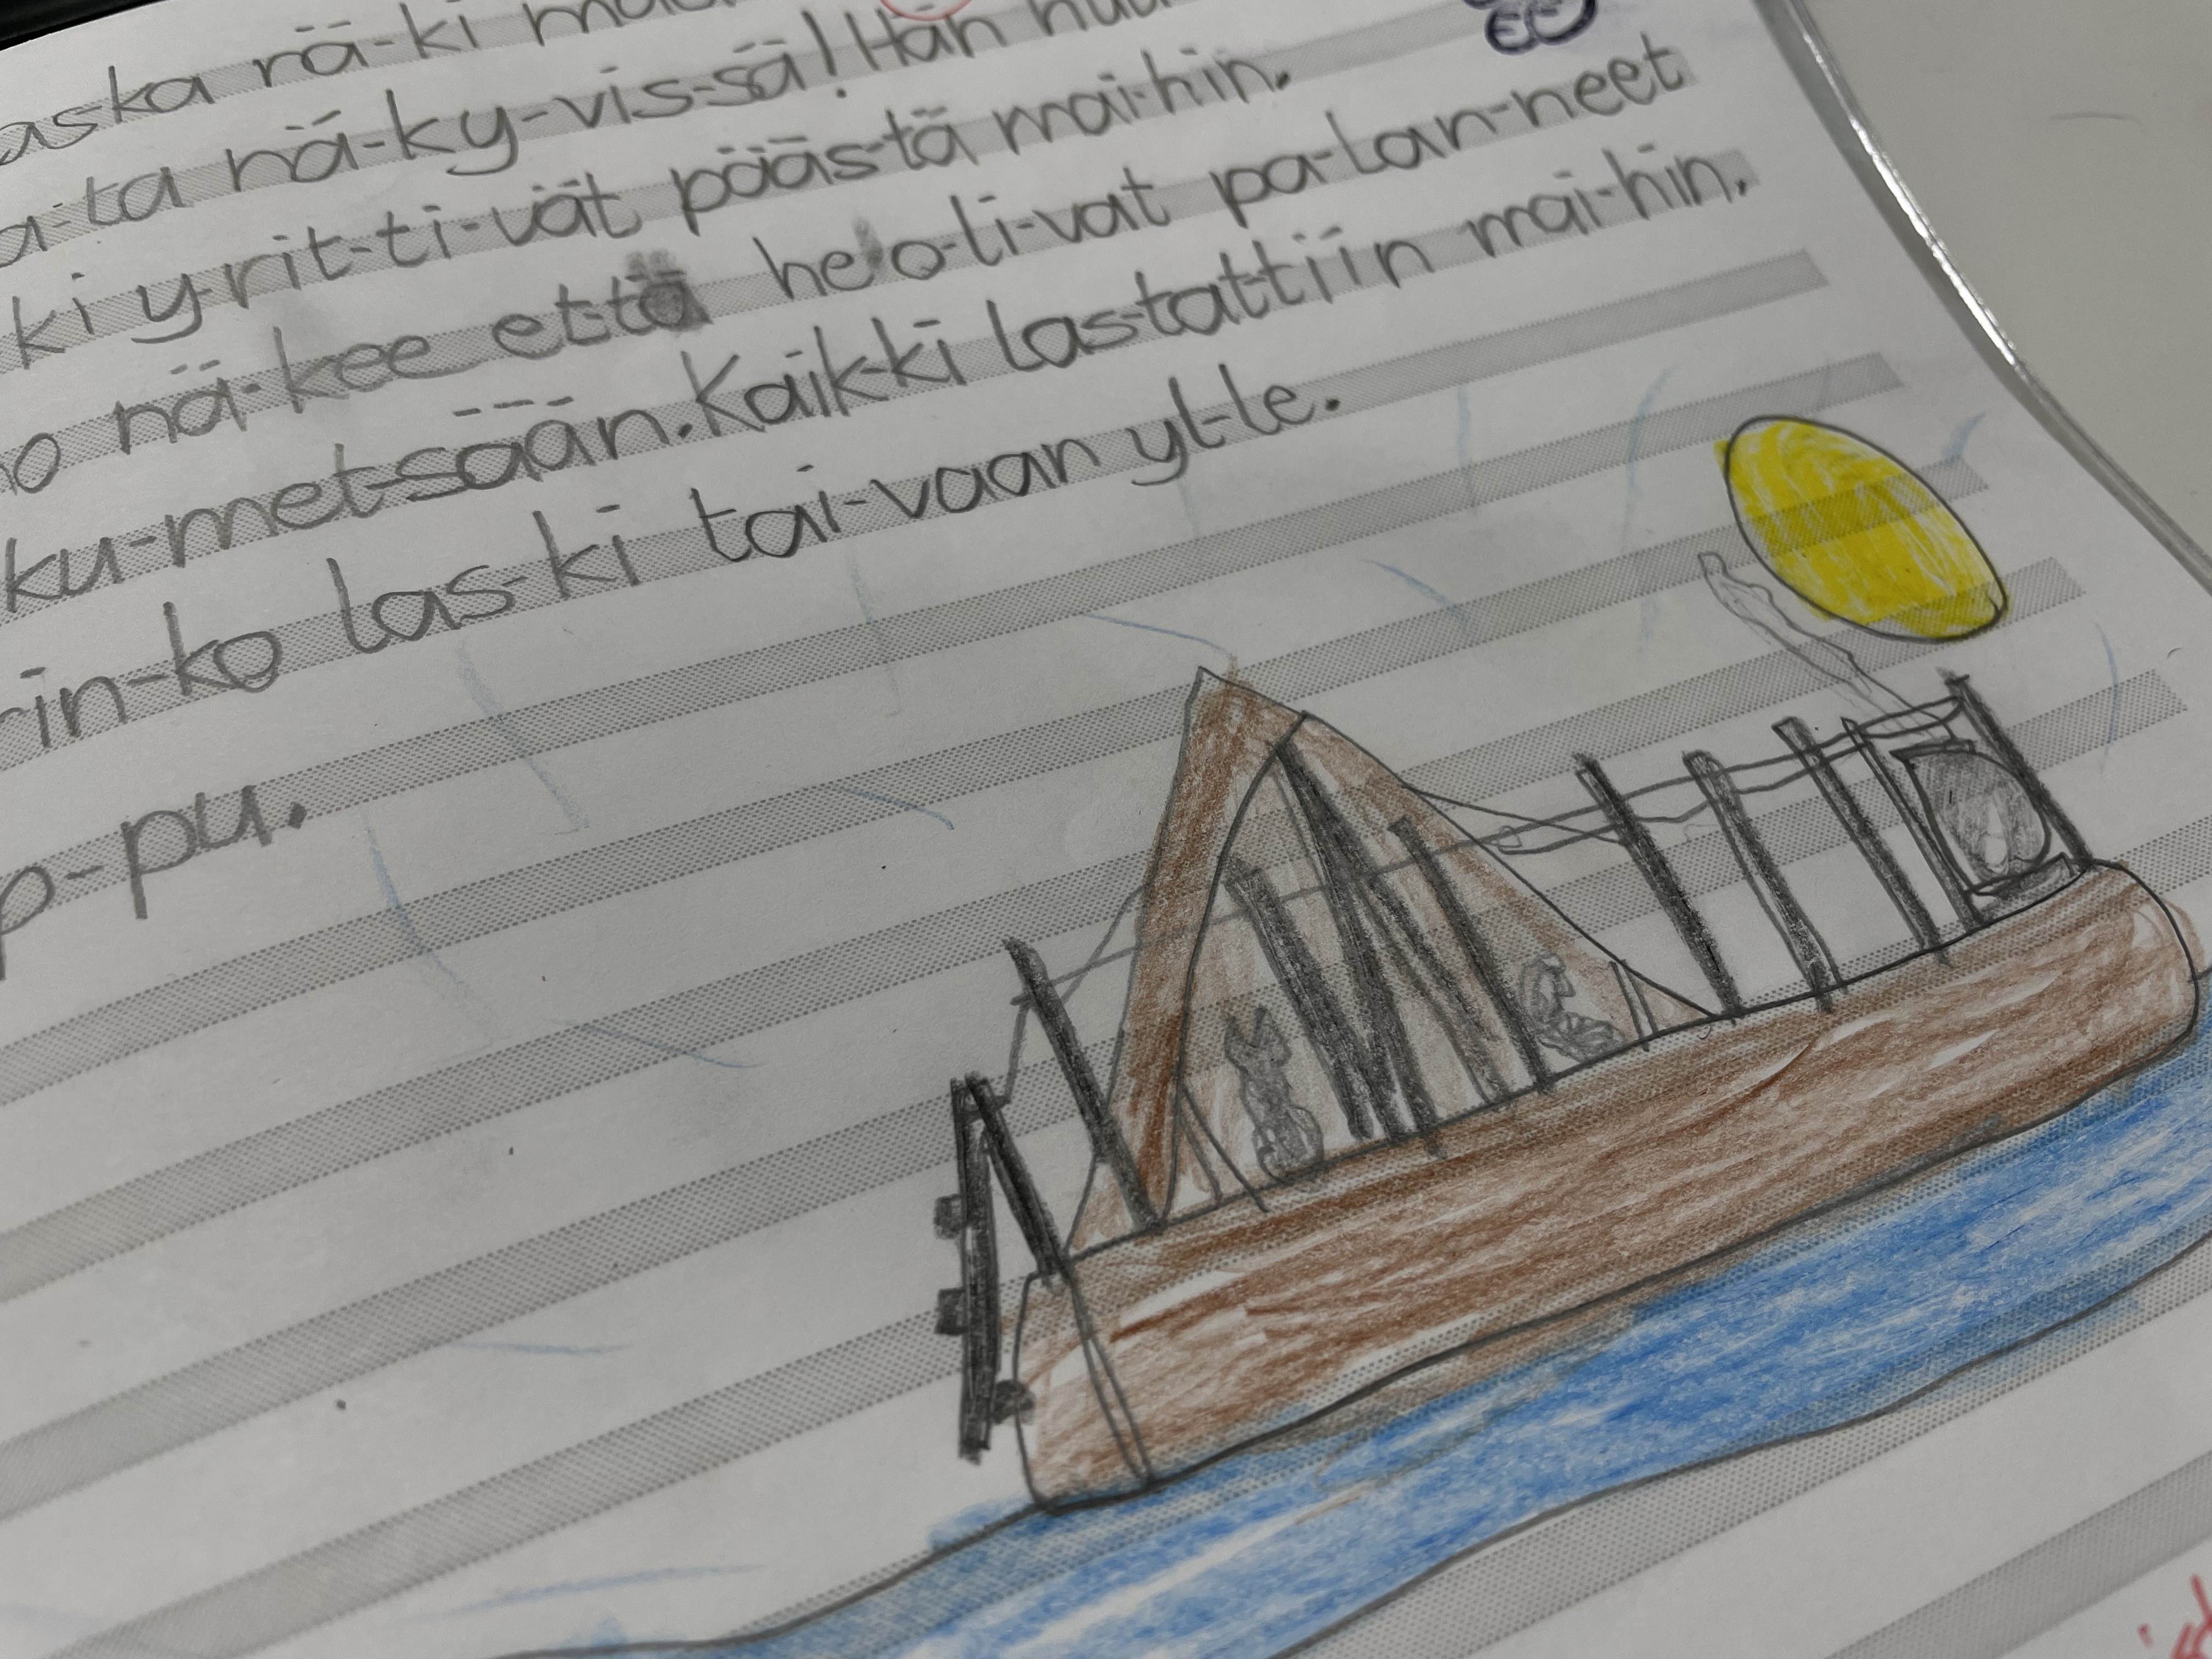 aska rä-ki
a-ta nä-ky-vis-sä! Hän
ki y-rit-ti-vät pääs-tä mai-hin.
nä-kee et-tä he o-li-vat pa-lan-neet
ku-met-sään. Kaik-ki las-tat-tiin mai-hin.
rin-ko las-ki tai-vaan yl-le.
p-pu.